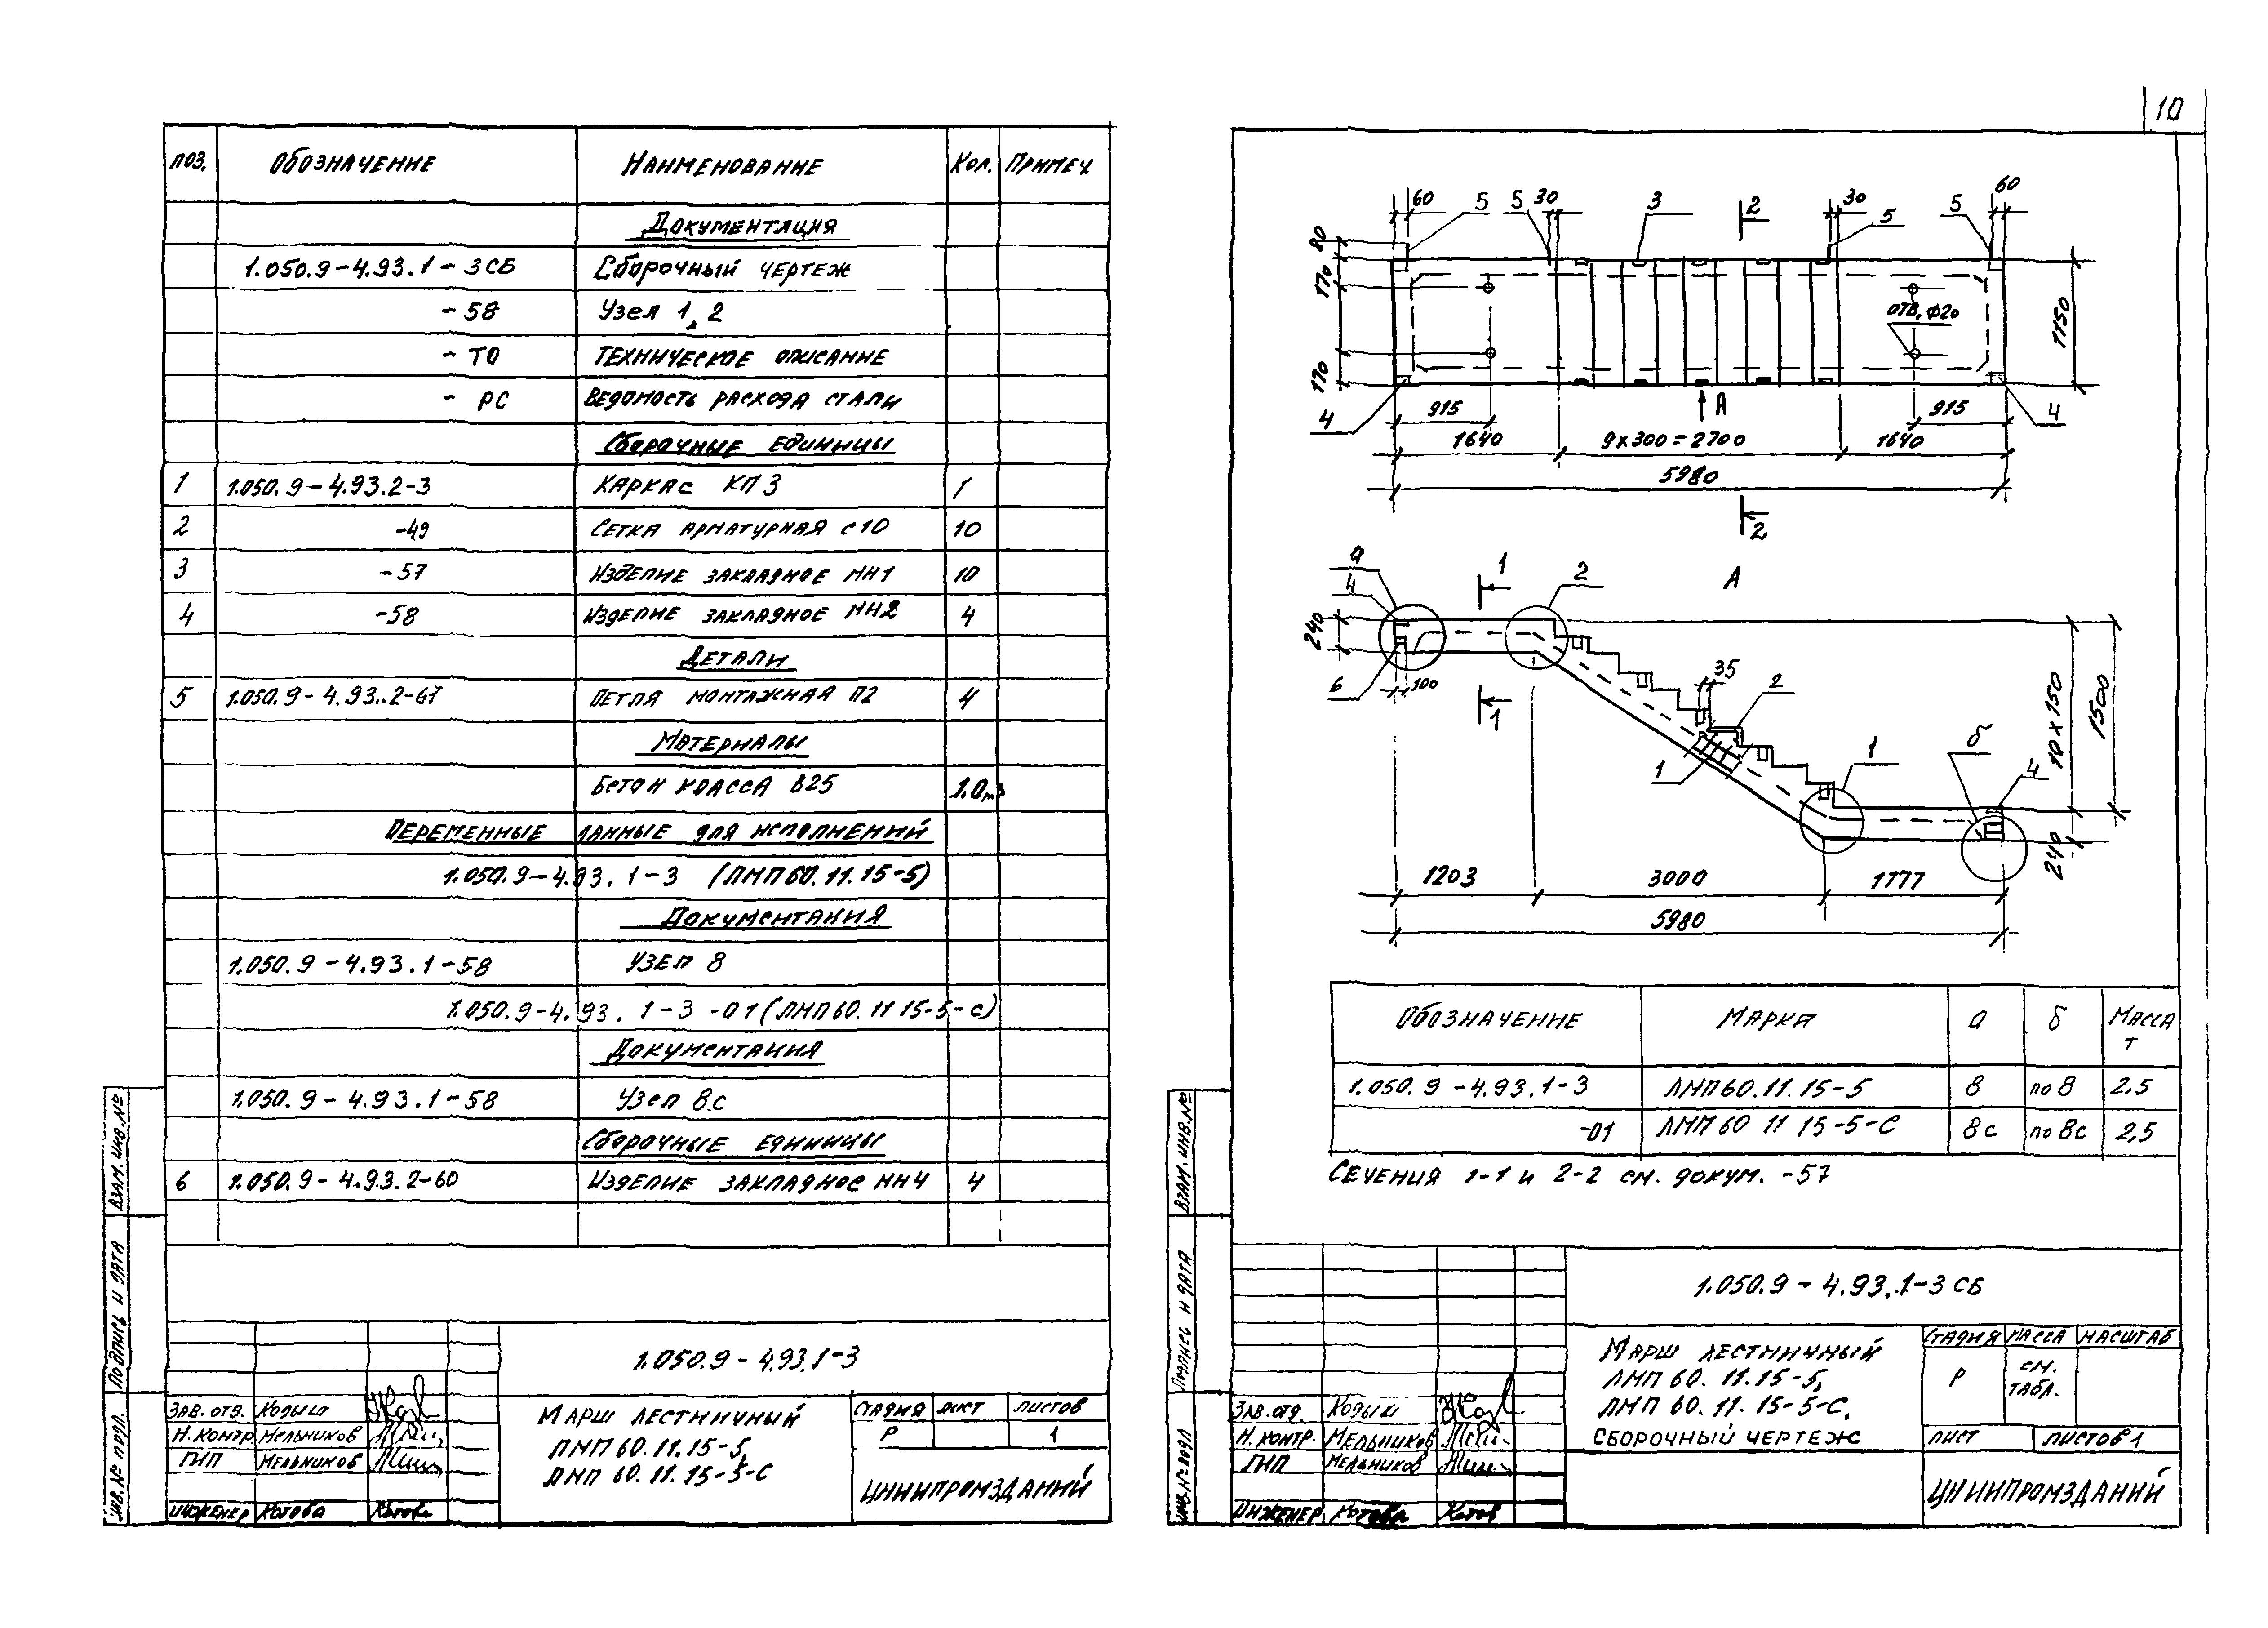 ПОЗ. ОБОЗНАЧЕНИЕ НАИМЕНОВАНИЕ КОЛ. ПРИМЕЧ
ДОКУМЕНТАЦИЯ
1.050.9-4.93.1-3СБ СБОРОЧНЫЙ ЧЕРТЕЖ
-58 УЗЕЛ 1, 2
-ТО ТЕХНИЧЕСКОЕ ОПИСАНИЕ
-РС ВЕДОМОСТЬ РАСХОДА СТАЛИ
СБОРОЧНЫЕ ЕДИНИЦЫ
1 1.050.9-4.93.2-3 КАРКАС КП3 1
2 -49 СЕТКА АРМАТУРНАЯ С10 10
3 -57 ИЗДЕЛИЕ ЗАКЛАДНОЕ МН1 10
4 -58 ИЗДЕЛИЕ ЗАКЛАДНОЕ МН2 4
ДЕТАЛИ
5 1.050.9-4.93.2-67 ПЕТЛЯ МОНТАЖНАЯ П2 4
МАТЕРИАЛЫ
БЕТОН КЛАССА В25 1.0м3
ПЕРЕМЕННЫЕ ДАННЫЕ ДЛЯ ИСПОЛНЕНИЙ
1.050.9-4.93.1-3 (ЛМП60.11.15-5)
ДОКУМЕНТАНИЯ
1.050.9-4.93.1-58 УЗЕЛ 8
1.050.9-4.93.1-3-01(ЛМП60.11 15-5-С)
ДОКУМЕНТАНИЯ
1.050.9-4.93.1-58 УЗЕЛ 8с
СБОРОЧНЫЕ ЕДИНИЦЫ
6 1.050.9-4.93.2-60 ИЗДЕЛИЕ ЗАКЛАДНОЕ МН4 4
ВЗАМ. ИНВ. №
ПОДПИСЬ И ДАТА
ИНВ. № ПОДЛ.
1.050.9-4.93.1-3
ЗАВ. ОТД. КОДЫШ
Н. КОНТР МЕЛЬНИКОВ
ГИП МЕЛЬНИКОВ
ИНЖЕНЕР КОТОВА
МАРШ ЛЕСТНИЧНЫЙ
ЛМП60.11.15-5,
ЛМП 60.11.15-5-С
СТАДИЯ ЛИСТ ЛИСТОВ
Р 1
ЦНИИПРОМЗДАНИЙ
10
60 5 5 30 3 2 30 5 5 60
80
170
170
1150
ОТВ. Ф20
4 915 А 915 4
1640 9х300=2700 1640
5980
2
а 1 2 А
4
240
6 100 1
35 2
1 1 б 4
10х150
1500
240
1203 3000 1777
5980
ОБОЗНАЧЕНИЕ МАРКА а б МАССА Т
1.050.9-4.93.1-3 ЛМП60.11.15-5 8 по 8 2,5
-01 ЛМП60 11 15-5-С 8с по 8с 2,5
СЕЧЕНИЯ 1-1 И 2-2 СМ. ДОКУМ. -57
ВЗАМ. ИНВ. №
ПОДПИСЬ И ДАТА
ИНВ. № ПОДЛ
1.050.9-4.93.1-3 СБ
ЗАВ. ОТД. КОДЫШ
Н. КОНТР. МЕЛЬНИКОВ
ГИП МЕЛЬНИКОВ
ИНЖЕНЕР КОТОВА
МАРШ ЛЕСТНИЧНЫЙ
ЛМП 60.11.15-5,
ЛМП 60.11.15-5-С.
СБОРОЧНЫЙ ЧЕРТЕЖ
СТАДИЯ МАССА МАСШТАБ
Р СМ. ТАБЛ.
ЛИСТ ЛИСТОВ 1
ЦНИИПРОМЗДАНИЙ